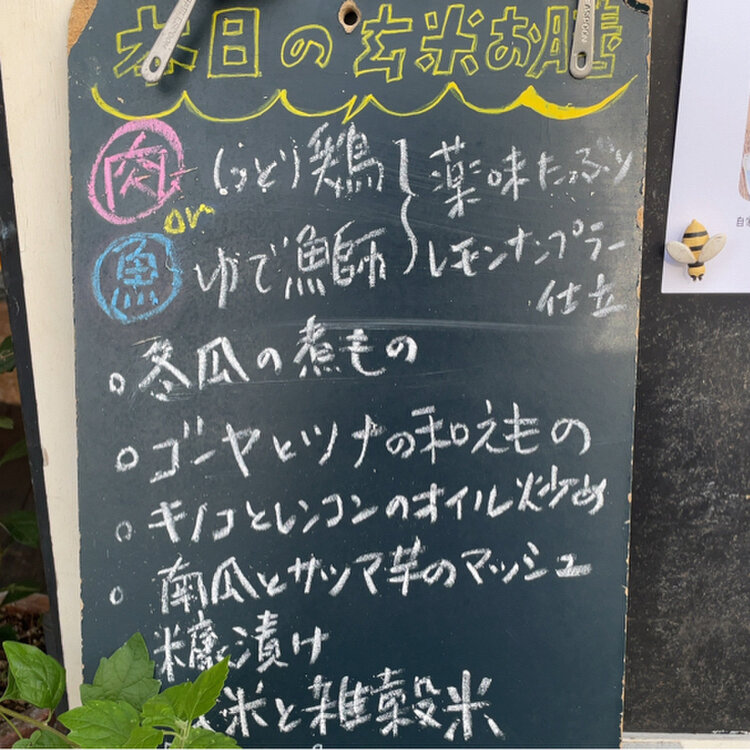 本日の玄米お膳
肉 しっとり鶏
or
魚 ゆで鰤
薬味たっぷり
レモンナンプラー
仕立
。冬瓜の煮もの
。ゴーヤとツナの和えもの
。キノコとレンコンのオイル炒め
。南瓜とサツマ芋のマッシュ
糠漬け
米と雑穀米